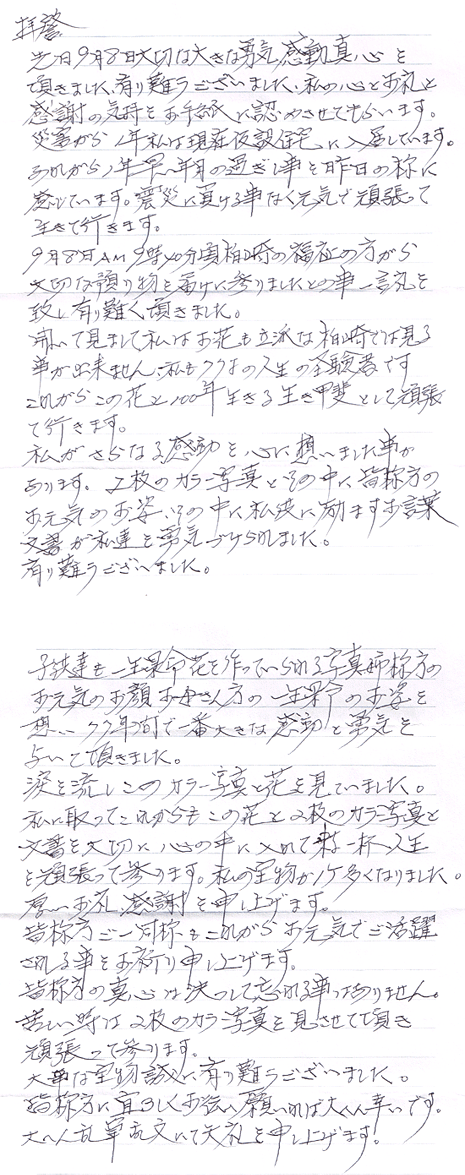 拝啓
先日9月8日大切な大きな勇気、感動、真心を
頂きました、有り難うございました、私の心とお礼と
感謝の気持をお手紙に認めさせてもらいます。
災害から1年私は現在仮設住宅に入居しています。
あれから1年早い年月の過ぎし事を昨日の様に
感じています。震災に負ける事なく元気で頑張って
生きて行きます。
9月8日AM9時40分頃柏崎の福祉の方から
大切な預り物を届けに参りましたとの事一言礼を
致し有り難く頂きました。
開いて見まして私はお花も立派な柏崎では見る
事が出来ません、私も77才の人生の経験者です
これからこの花と100年生きる生き甲斐として頑張
て行きます。
私がさらなる感動を心に想いました事が
あります。2枚のカラー写真とその中に皆様方の
お元気のお姿、その中に私達に励ますお言葉
文書が私達を勇気づけられました。
有り難うございました。
子供達も一生懸命花を作っていられる写真姉様方の
お元気のお顔お母さん方の一生懸命のお姿を
想い77年間で一番大きな感動と勇気を
与いて頂きました。
涙を流しこのカラー写真と花を見ていました。
私に取ってこれからもこの花と2枚のカラー写真と
文書を大切に心の中に入れて精一杯人生
を頑張って参ります。私の宝物が1ケ多くなりました。
厚いお礼感謝を申し上げます。
皆様方ご一同様もこれからお元気でご活躍
される事をお祈り申し上げます。
皆様方の真心は決っして忘れる事はありません。
苦しい時は2枚のカラー写真を見させて頂き
頑張って参ります。
大事な宝物誠に有り難うございました。
皆様方に宜しくお伝い願いれば大へん幸いです。
大へん乱筆乱文にて失礼を申し上げます。